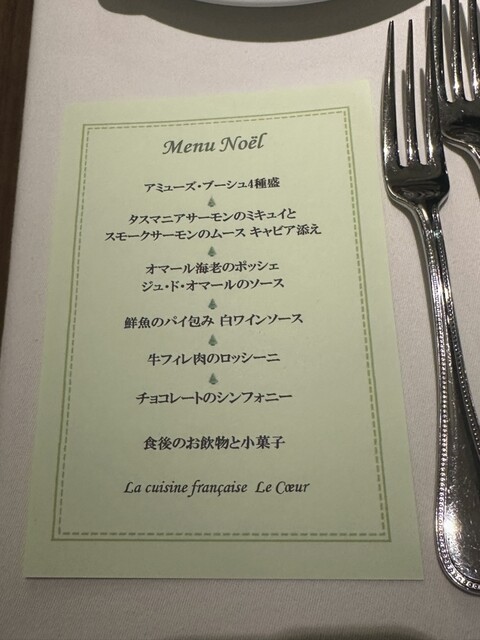 Menu Noël
アミューズ・ブーシュ4種盛
タスマニアサーモンのミキュイと
スモークサーモンのムース キャビア添え
オマール海老のポッシェ
ジュ・ド・オマールのソース
鮮魚のパイ包み 白ワインソース
牛フィレ肉のロッシーニ
チョコレートのシンフォニー
食後のお飲物と小菓子
La cuisine française Le Cœur